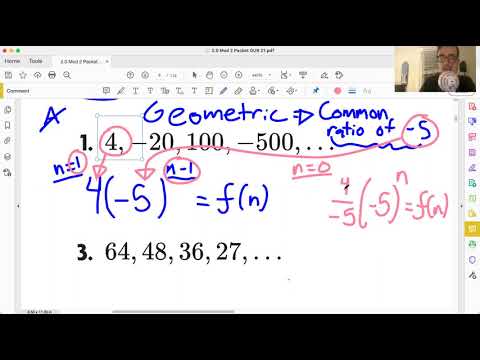 2.0 Mod 2 Packet OUR 21.pdf
2.0 Mod 2 Packet...
Comment
A Geometric ⇒ Common
ratio of -5
1. 4, −20, 100, −500, . . .
n=1 n-1 n=0
4(-5) = f(n)
4/-5 (-5)^n = f(n)
3. 64, 48, 36, 27, . . .